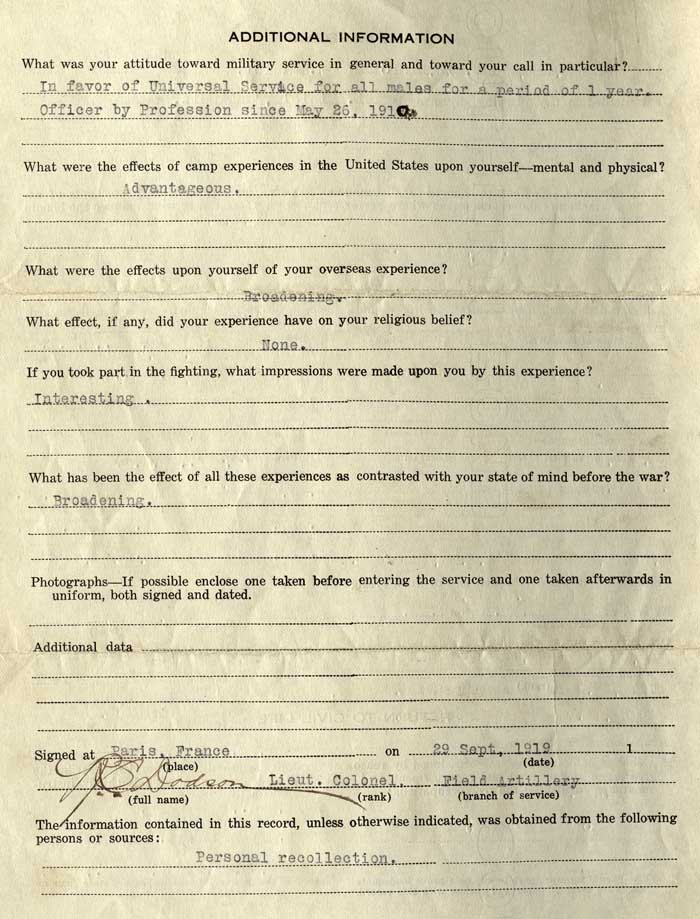 ADDITIONAL INFORMATION
What was your attitude toward military service in general and toward your call in particular?
In favor of Universal Service for all males for a period of 1 year.
Officer by Profession since May 26, 1910.
What were the effects of camp experiences in the United States upon yourself—mental and physical?
Advantageous.
What were the effects upon yourself of your overseas experience?
Broadening.
What effect, if any, did your experience have on your religious belief?
None.
If you took part in the fighting, what impressions were made upon you by this experience?
Interesting .
What has been the effect of all these experiences as contrasted with your state of mind before the war?
Broadening.
Photographs—If possible enclose one taken before entering the service and one taken afterwards in
uniform, both signed and dated.
Additional data
Signed at Paris, France on 29 Sept, 1919 1
(place) (date)
Dodson Lieut. Colonel, Field Artillery
(full name) (rank) (branch of service)
The information contained in this record, unless otherwise indicated, was obtained from the following
persons or sources:
Personal recollection.